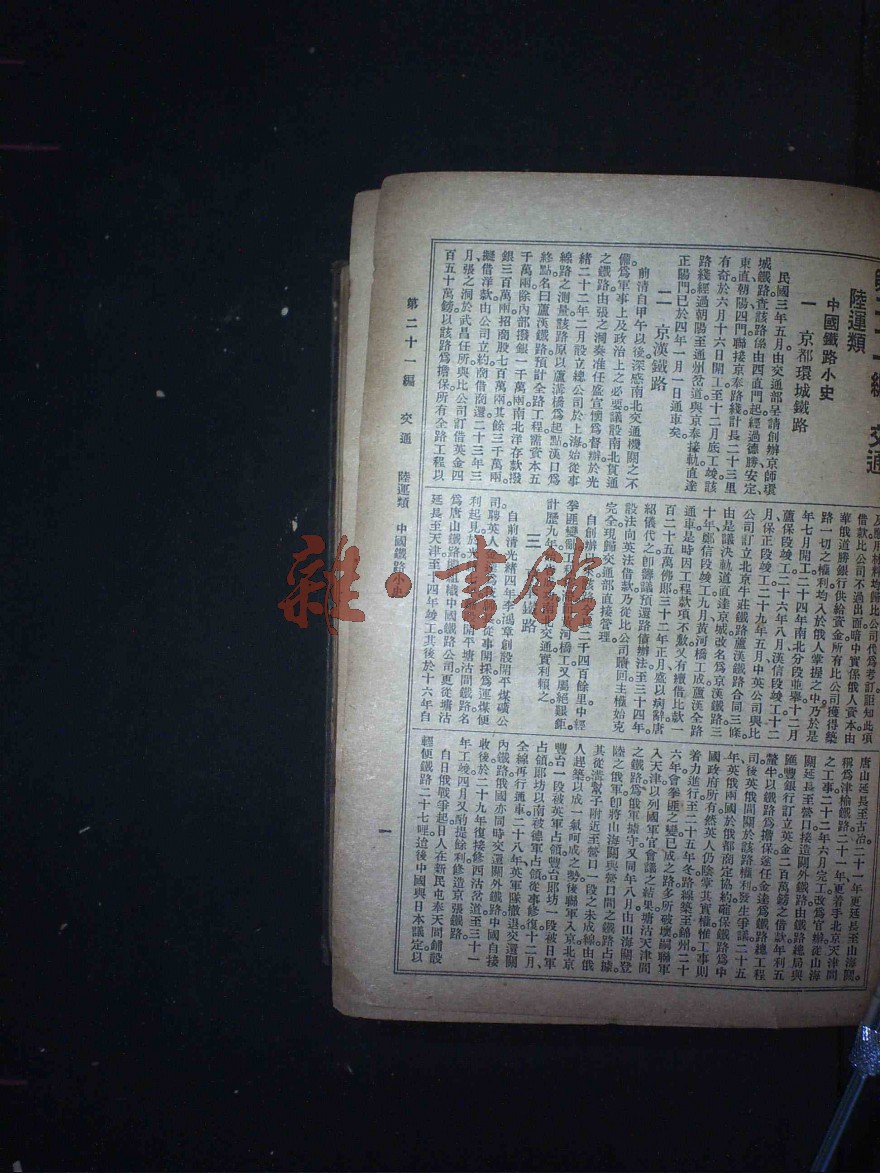 交通
陸運類
中國鐵路小史
一　京都環城鐵路
民國三年五月由交通部呈請創辦京師環
城鐵路查該路係由西直門起經過德勝安定
東直朝陽四門聯接京奉路綫計長二十三里
有奇於六月十六日開工至十二月底工竣該
路綫經過朝陽至通州岔道與京奉接軌直達
正陽門已於四年一月一日通車矣。
二　京漢鐵路
前清自甲午以後深感南北交通機關之不
備為軍事上及政治上之必要議設南北貫通
之鐵路由張之洞奏准任盛宣懷為督辦於光
緒二十二年二月設立總公司於上海始從事
線路之測量該路原以蘆溝橋為起點漢口為
終點名曰蘆漢鐵路預計全路工程需資本五
千萬兩除內部撥銀一千萬兩南北洋存款撥
銀三百萬兩招商股七百萬兩其餘三千萬兩
擬借洋款由公司立約商借商還二十三年三
月張之洞於武昌任所與比公司訂借英金四
百五十萬鎊以該路為擔保所有全路工程以
及應用材料均歸比公司代為考訂詎知此項
借款比公司不過出面暗中實係俄人資本由
華俄道勝銀行供給資金所有比公司獲得築
路一切之權利均入於俄人掌握之中乃於是
年七月開工二十四年南北分段並舉十二月
蘆保段竣工二十六年八月漢信段竣工十二
月保正段竣工二十九年五月中英公司與比
公司訂立北京牛莊鐵路蘆漢鐵路合同三條
由是議決軌道直達京城改名為京漢鐵路三
十年鄭信段竣工九月黃河橋工成蘆漢全路
通車是時因工程款項不敷又有續借比款一
百二十五萬佛郎三十二年正月盛以病辭唐
紹儀代之即籌議預還路債辦法至三十四年
設法向英法借款乃從比公司贖回主權始克
完全現歸交通部直接管理。
自創辦
二千四百餘里中經
拳匪變
河橋工又屬絕艱鉅
計歷九年
交通實利賴之。
三
鐵路
自前清光緒四年李鴻章創設開平煤礦公
司聘英人
從事開採為運煤便
利起見於光
開平塘沽間鐵路名
為唐山鐵路
組織中國鐵路公司更從塘沽
延長至天津至十四年竣工其後於十六年自
唐山延長至古冶二十一年更延長至山海關。
稱為津榆鐵路二十一年更着手北京天津間
之工事二十二年六月完工改為官辦從山海
關延長至營口接造關外鐵路由鐵路總局與
匯豐銀行訂立英金二百萬鎊之借款年利五
釐牛以鐵路為擔保遂任金達為鐵路總工程
司後英俄間關於該路權利發生爭議二十五
年英俄兩國於俄都商定協約確保鐵路為中
國政府所有然英人仍陰掌其實權惟工事則
着力進行至二十五年冬路線築至錦州二十
六年會拳匪之變已成之路多所破壞嗣聯軍
入天津以列國軍官會議之結果塘沽天津間
之鐵路為俄軍據守又同年八月由山海關登
陸之俄軍卽將山海關與營口間之鐵路占據。
其從溝幫子附近至營口一段之未成線由俄
人趕築以成一氣呵成之勢後聯軍入京北京
豐台一段被英軍占領豐台郎坊一段被日軍
占領郎坊以南被德軍占領從事修復十二月
全線再行通車二十八年英軍隊撤退交還關
內鐵路俄國亦同時交還關外鐵路中國自接
收後於二十九年復接修西沽岔道至三十一
年工竣四月又酌提餘利修造京張鐵路。
自日俄戰爭起日人在新民屯奉天間鋪設
輕便鐵路二十七哩迨後中國與日本議定以
第二十一編　交通　陸運類　中國鐵路小史
一
雜·書館